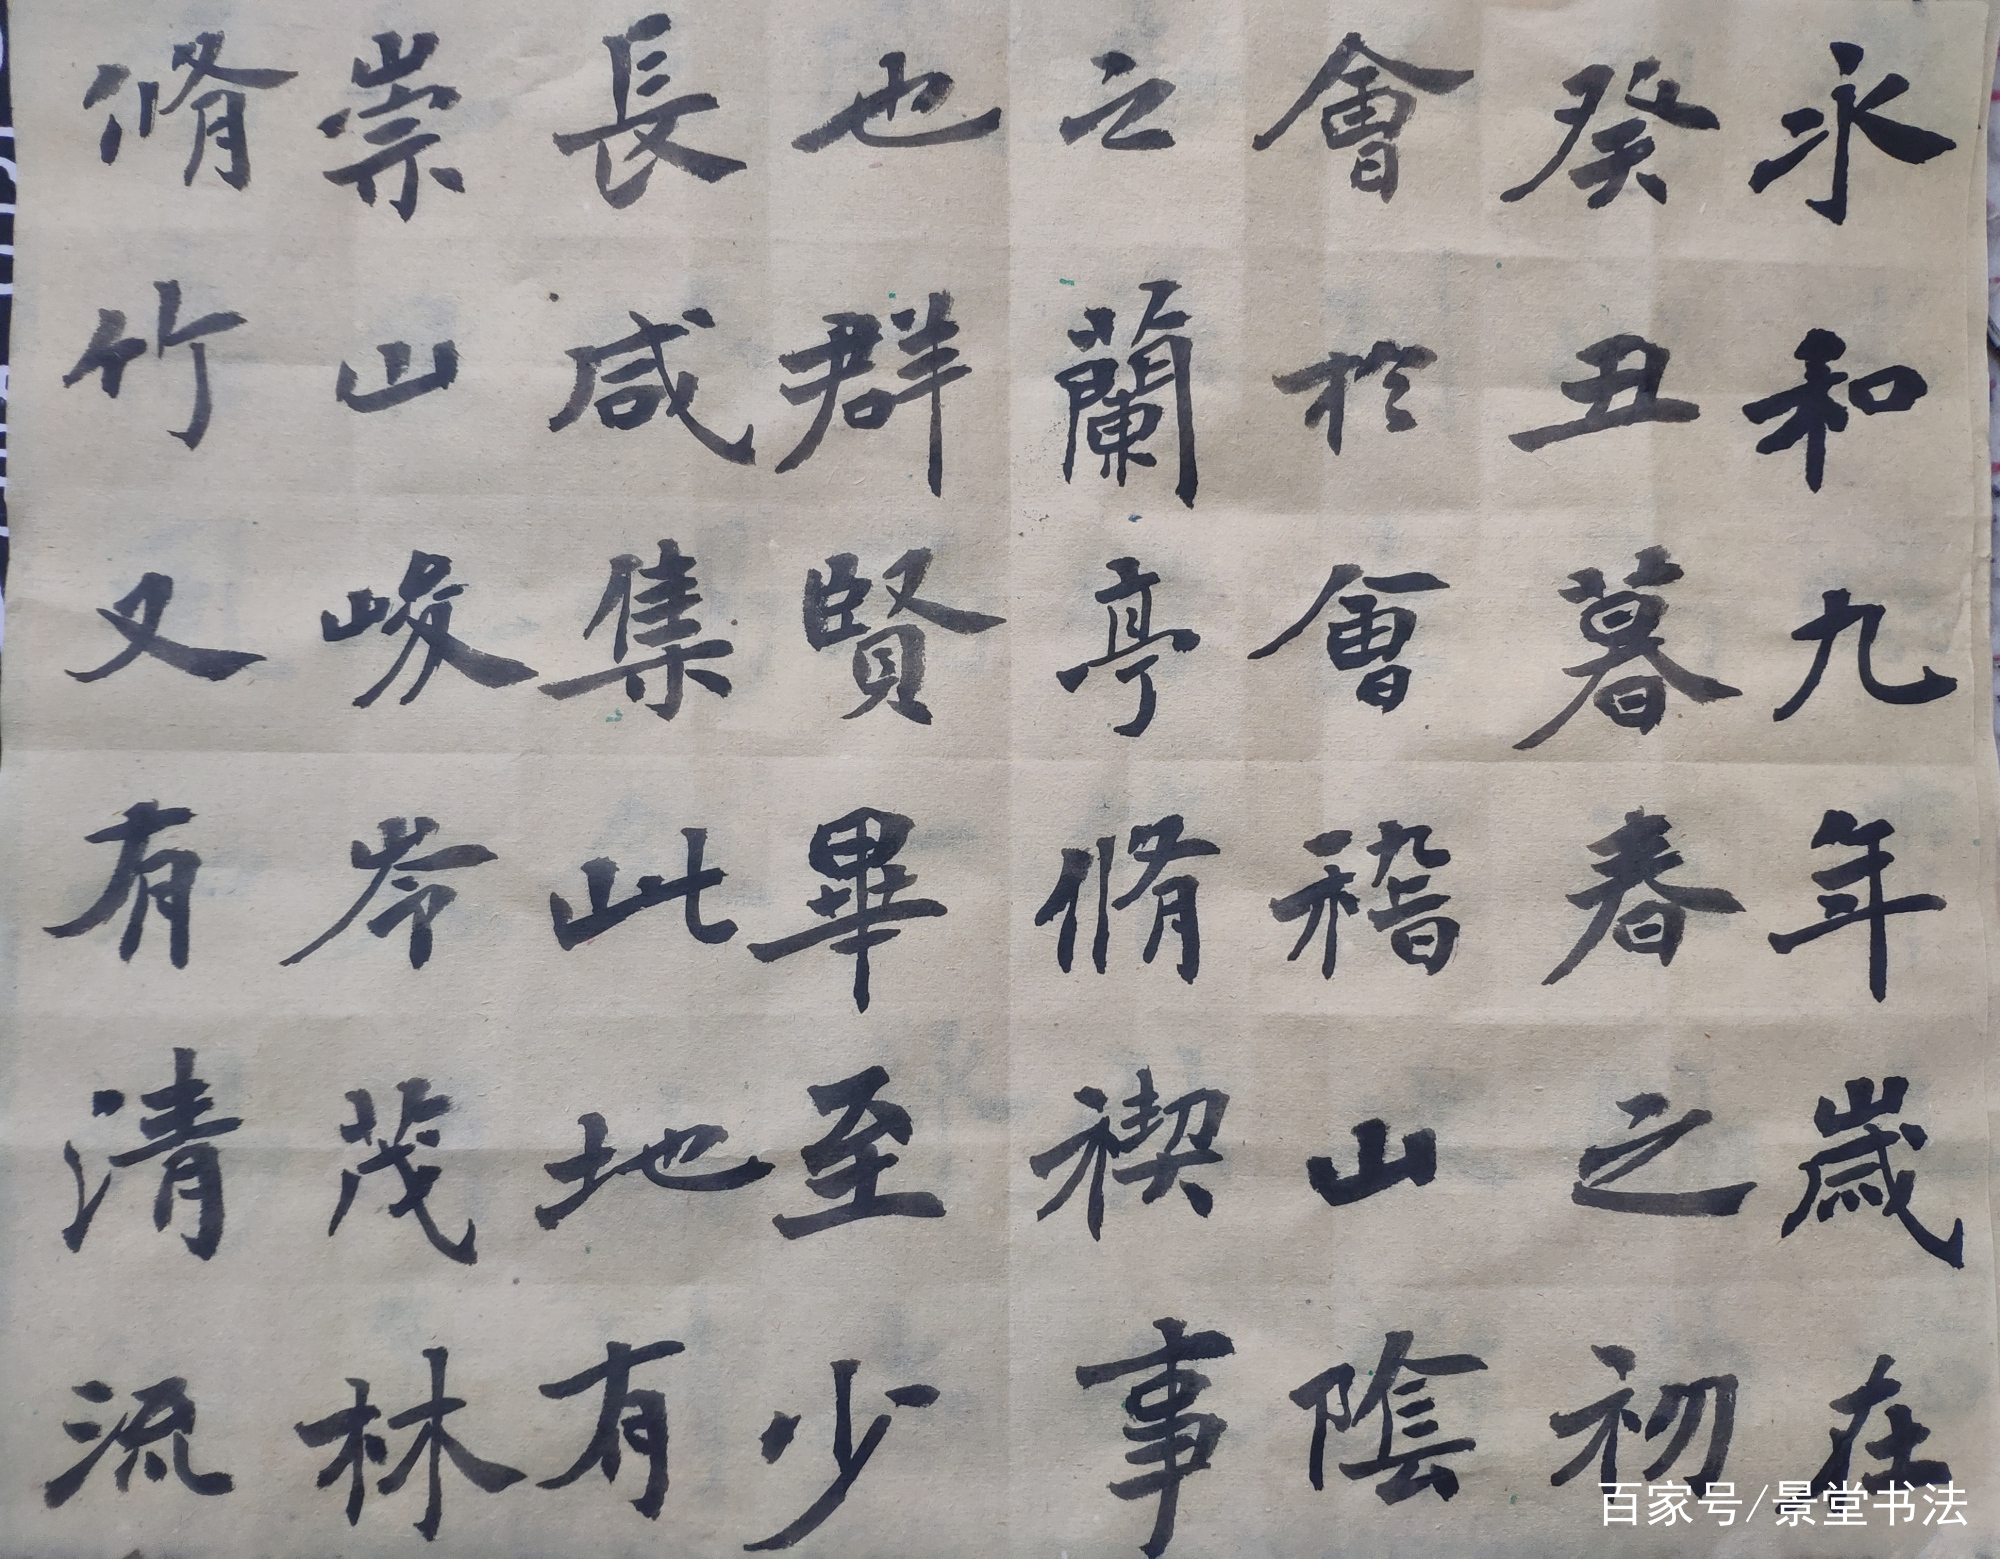 永和九年歲在
癸丑暮春之初
會於會稽山陰
之蘭亭脩禊事
也群賢畢至少
長咸集此地有
崇山峻岭茂林
脩竹又有清流
百家号/景堂书法